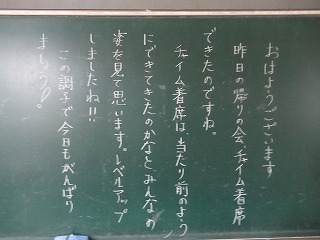 おはようございます
昨日の帰りの会、チャイム着席
できたのですね。
チャイム着席は、当たり前のよう
にできてきたのかなとみんなの
姿を見て思います。レベルアップ
しましたね!!
この調子で今日もがんばり
ましょう!。